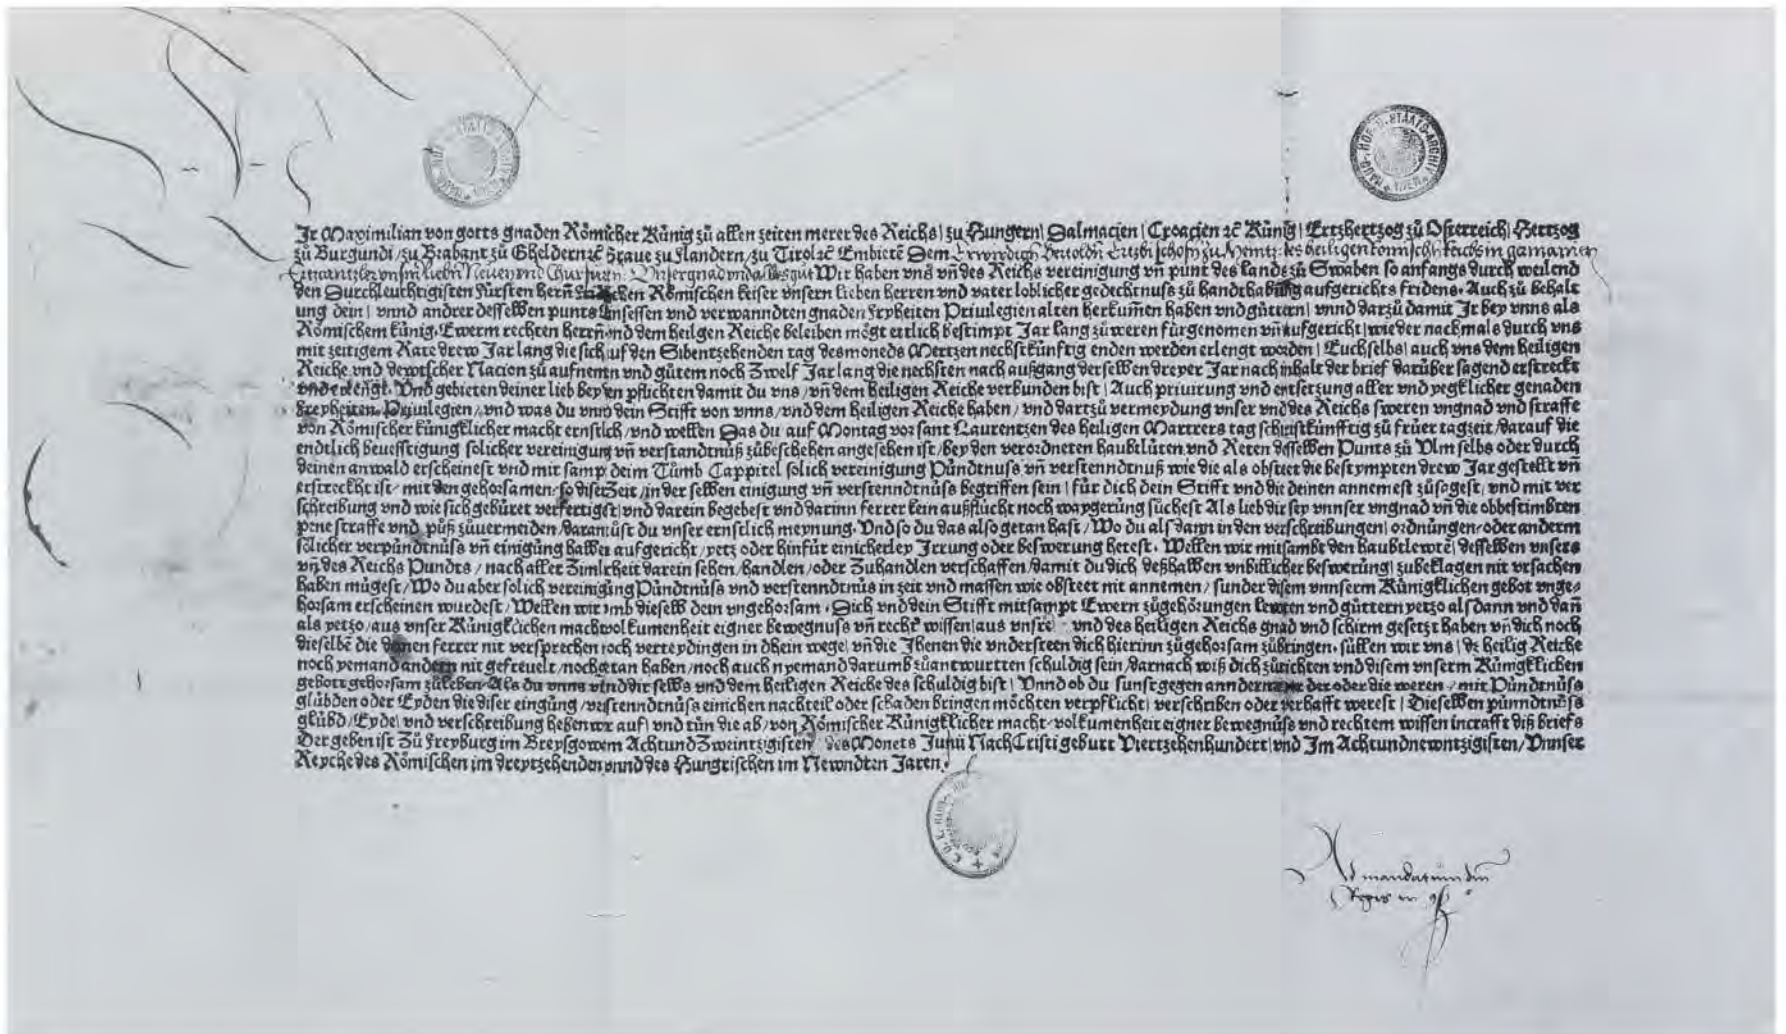 HAUS-HOF-U-STAATS-ARCHIV WIEN
Ir Maximilian von gotts gnaden Römischer Künig zů allen zeiten merer des Reichs/ zu Hungern/ Dalmacien/ Croacien ꝛc Künig/ Ertzhertzog zů Österreich/ Hertzog
zů Burgundi/ zů Brabant zů Gheldern ꝛc Graue zu Flandern/ zu Tirol ꝛc Embietē Dem Erwirdigen Bertoldn Ertzbischofn zu Mentz des heiligen Romischn Reichs in germanien
Ertzcantzler vnserm liebn Neuen vnd Churfursten Vnser gnad vnd alles gut Wir haben vns vñ des Reichs vereinigung vñ punt des lands zů Swaben so anfangs durch weilend
den Durchleuchtigisten Fürsten herñ Romischen keiser vnsern lieben herren vnd vater loblicher gedechtnuss zů handthabung aufgerichts fridens. Auch zů behalt
ung dein/ vnnd andrer desselben punts Inseffen vnd verwanndten gnaden Fryheiten Priuilegien alten herkumen haben vnd güttern/ vnnd darzů damit Ir bey vnns als
Römischem künig. Ewerm rechten herrñ vnd dem heilgen Reiche beleiben mögt ettlich bestimpt Jar lang zů weren fürgenomen vñ aufgericht/ wie der nachmals durch vns
mit zeitigem Rate drew Jar lang die sich auf den Sibentzehenden tag des moneds Mertzen nechstkünftig enden werden erlengt worden/ Euch selbs/ auch vns dem heiligen
Reiche vnd dewtscher Nacion zů aufnemn vnd gůtem noch Zwelf Jar lang die nechsten nach außgang derselben dreyer Jar nach inhalt der brief darüber sagend erstreckt
vnd erlengt. Vnd gebieten deiner lieb bey den pflichten damit du vns/ vñ dem heiligen Reiche verbunden bist/ Auch priuirung vnd entsetzung aller vnd yegklicher genaden
Freyheiten. Priuilegien/ vnd was du vnnd dein Stifft von vnns/ vnd dem heiligen Reiche haben/ vnd dartzů vermeydung vnser vnd des Reichs sweren vngnad vnd straffe
von Römischer künigklicher macht ernstlich/ vnd wellen Das du auf Montag vor sant Laurentzen des heiligen Martrers tag schirist künfftig zů früer tagzeit/ darauf die
endtlich beuestigung solicher vereinigung vñ verstandtnüß zůbeschehen angesehen ist/ bey den verordneten haubtlüten vnd Reten desselben Punts zů Vlm selbs oder durch
deinen anwald erscheinest vnd mit samp deim Tůmb Cappitel solich vereinigung Pündtnuss vñ verstenndtnuß wie die als obsteet die bestympten drew Jar gestellt vñ
erstreckht ist/ mit den gehorsamen/ so diser Zeit/ in der selben einigung vñ verstenndtnüss begriffen sein/ für dich dein Stifft vnd die deinen annemest zůsagest/ vnd mit ver
schreibung vnd wie sich gebüret verfertigst/ vnd darein begebest vnd darinn ferrer kein außflücht noch waygerüng sůchest Als lieb dir sey vnnser vngnad vñ die obbestimbten
pene straffe vnd půß zůuermeiden/ daran tůst du vnser ernstlich meynung. Vnd so du das also getan hast/ Wo du als dann in den verschreibungen/ ordnüngen/ oder anderm
sölicher verpündtnüss vñ einigüng halben aufgericht/ yetz oder hinfür einicherley Irrung oder beswerung hetest. Wellen wir mitsambt den haubtlewtē/ desselben vnsers
vñ des Reichs Pundts/ nach aller Zimlicheit darein sehen/ handlen/ oder Zuhandlen verschaffen/ damit du dich deßhalben vnbillicher beswerüng/ zubeklagen nit vrsachen
haben mügest/ Wo du aber solich vereinigüng Pündtnuss vnd verstenndtnüs in zeit vnd massen wie obsteet nit annemen/ sunder disem vnnserm Künigklichen gebot vnge-
horsam erscheinen wurdest/ Wellen wir vmb dieselb dein vngehorsam. Dich vnd dein Stifft mitsampt Ewern zůgehörungen lewten vnd güttern yetzo als dann vnd dañ
als yetzo/ aus vnser Künigklichen machtuolkumenheit eigner bewegnuss vñ recht wissen/ aus vnsre vnd des heiligen Reichs gnad vnd schirm gesetzt haben vñ dich noch
dieselbē die deinen ferrer nit versprechen noch verteydingen in dhein wege/ vñ die Jhenen die vndersteen dich hierinn zůgehorsam zůbringen. süllen wir vns/ dē heilig Reiche
noch yemand andern nit gefreuelt/ noch getan haben/ noch auch nyemand darumb zůantwurtten schuldig sein/ darnach wiß dich zůrichten vnd disem vnserm Künigklichen
gebott gehorsam zůleben. Als du vnns vñd dir selbs vnd dem heiligen Reiche des schuldig bist/ Vnnd ob du sunst gegen anndern der oder die weren/ mit Pündtnüss
glübden oder Eyden die diser eingüng/ verstenndtnüss einichen nachteil oder schaden bringen möchten verpflicht/ verschriben oder verhafft werest/ Dieselben pünndtnüss
glübd/ Eyde/ vnd verschreibung heben wir auf/ vnd tün die ab/ von Römischer Künigklicher macht/ volkumenheit eigner bewegnüss vnd rechtem wissen incrafft diß briefs
Der geben ist Zů Freyburg im Breysgow em Achtund Zweintzigisten des Monets Junii Nach Cristi geburt Viertzehenhundert/ vnd Im Achtundnewntzigisten/ Vnnser
Reyche des Römischen im dreytzehenden vnnd des Hungrischen im Newndten Jaren.
Ad mandatum dni
Regis in